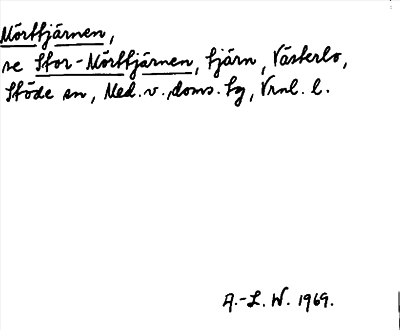 Mörttjärnen,
se Stor-Mörttjärnen, tjärn, Västerlo,
Stöde sn, Med. v. doms. tg, Vrnl. l.
A.-L. W. 1969.